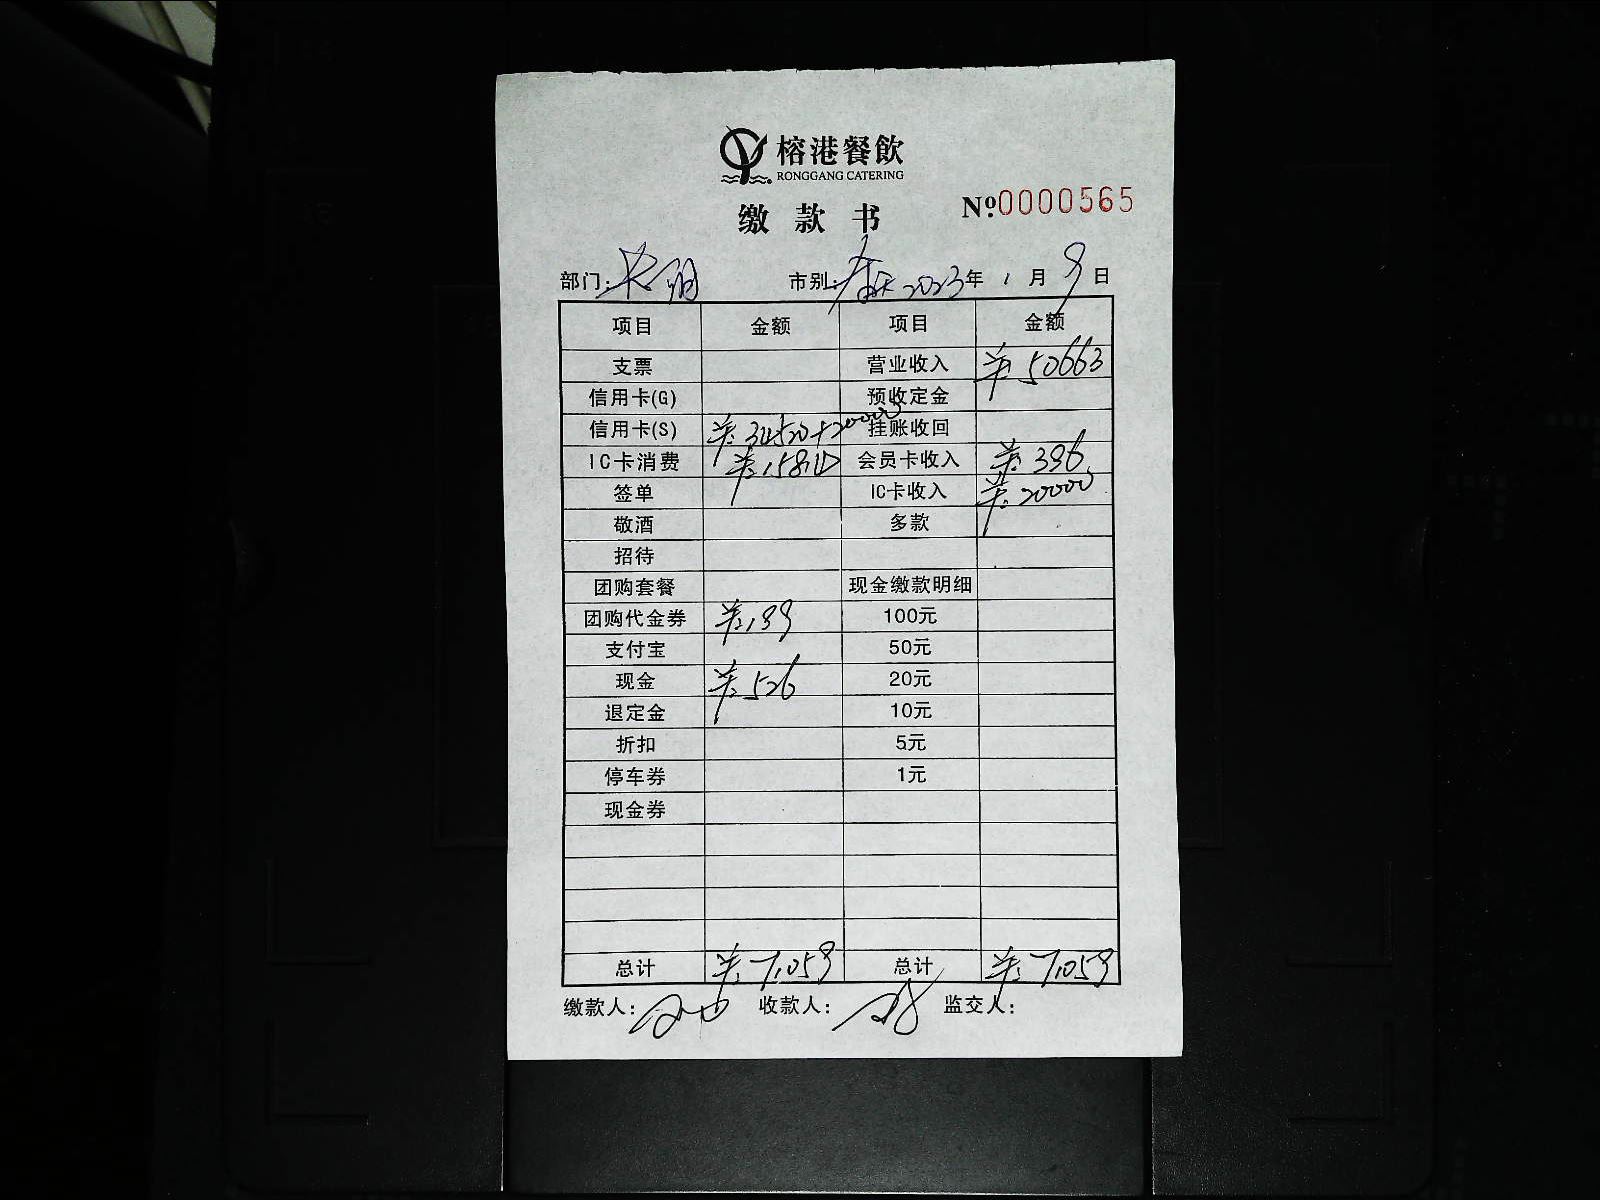 榕港餐飲
RONGGANG CATERING
缴款书
Nº0000565
部门: 市别: 2023年 1月 9日
项目 金额 项目 金额
支票 营业收入 ¥50663
信用卡(G) 预收定金
信用卡(S) ¥:34520+20000 挂账收回
IC卡消费 ¥:15814 会员卡收入 ¥:396
签单 IC卡收入 ¥:20000
敬酒 多款
招待
团购套餐 现金缴款明细
团购代金券 ¥:199 100元
支付宝 50元
现金 ¥:526 20元
退定金 10元
折扣 5元
停车券 1元
现金券
总计 ¥:71059 总计 ¥:71059
缴款人: 收款人: 监交人: